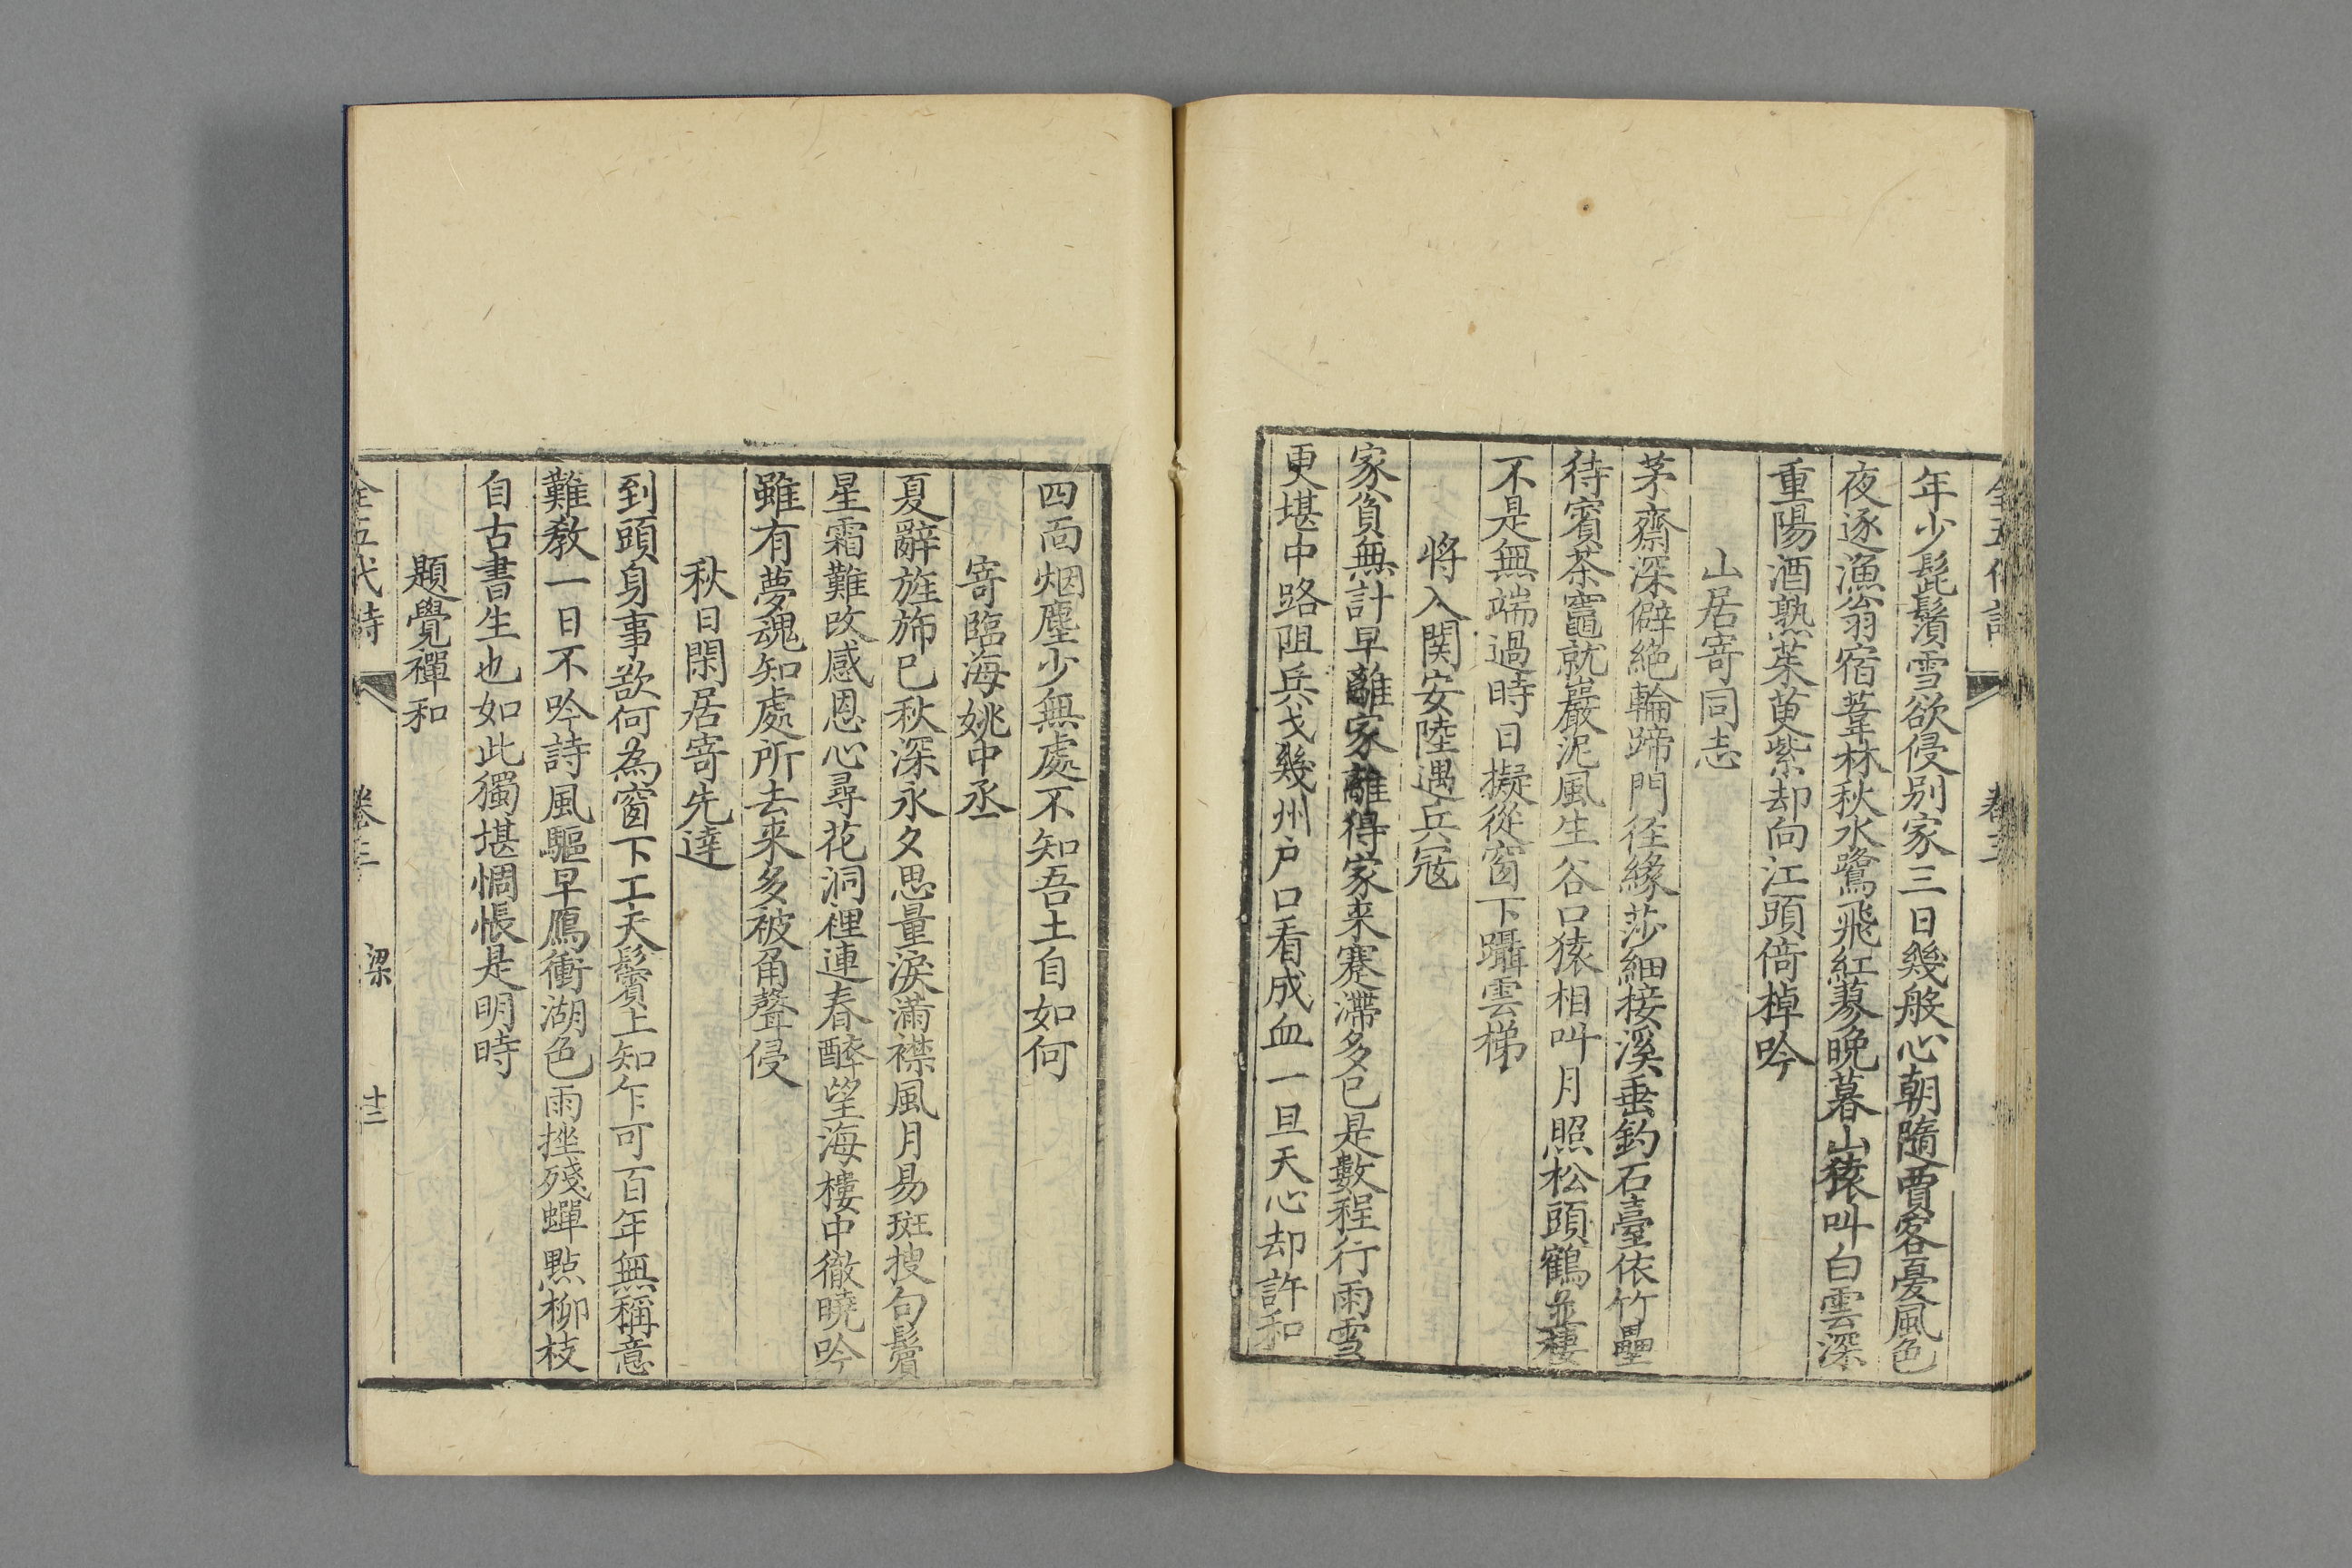 全五代詩 卷三
年少髭鬚雪欲侵别家三日幾般心朝隨賈客憂風色
夜逐漁翁宿葦林秋水鷺飛紅蓼晚暮山猿叫白雲深
重陽酒熟茱萸紫却向江頭倚棹吟
山居寄同志
茅齋深僻絶輪蹄門徑緣莎細接溪垂釣石臺依竹壘
待賓茶竈就巖泥風生谷口猿相叫月照松頭鶴並棲
不是無端過時日擬從窗下躡雲梯
將入関安陸遇兵寇
家貧無計早離家離得家来蹇滯多已是數程行雨雪
更堪中路阻兵戈幾州户口看成血一旦天心却許和
四面烟塵少無處不知吾土自如何
寄臨海姚中丞
夏辭旌斾已秋深永夕思量淚滿襟風月易斑搜句鬢
星霜難改感恩心尋花洞裡連春醉望海樓中徹曉吟
雖有夢魂知處所去来多被角聲侵
秋日閑居寄先達
到頭身事欲何為窗下工夫鬢上知乍可百年無稱意
難教一日不吟詩風驅早鴈衝湖色雨挫殘蟬點柳枝
自古書生也如此獨堪惆悵是明時
題覺禪和
全五代詩 卷三 梁 十二